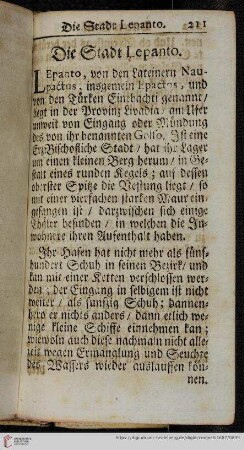 Die Stadt Lepanto. 211
Die Stadt Lepanto.
LEpanto, von den Lateinern Nau-
pactos, insgemein Epactos, und
von den Türken Einebachti genannt/
ligt in der Provinz Livadia/ am Ufer
unweit von Eingang oder Mündung
des von ihr benannten Golfo. Ist eine
Ertz-Bischofliche Stadt/ hat ihr Lager
um einen kleinen Berg herum/ in Ge-
stalt eines runden Kegels; auf dessen
oberster Spitze die Vestung liegt/ so
mit einer vierfachen starken Maur ein-
gefangen ist/ darzwischen sich einige
Thäler befinden/ in welchen die In-
wohnere ihren Aufenthalt haben.
Ihr Hafen hat nicht mehr als fünf-
hundert Schuh in seinen Bezirk/ und
kan mit einer Ketten verschlossen wer-
den; der Eingang in selbigem ist nicht
weiter/ als funfzig Schuh; dannen-
hero er nichts anders/ dann etlich we-
nige kleine Schiffe einnehmen kan;
wiewoln auch diese nachmaln nicht alle-
zeit wegen Ermanglung und Seuchte
des Wassers wieder auslauffen kön-
nen.